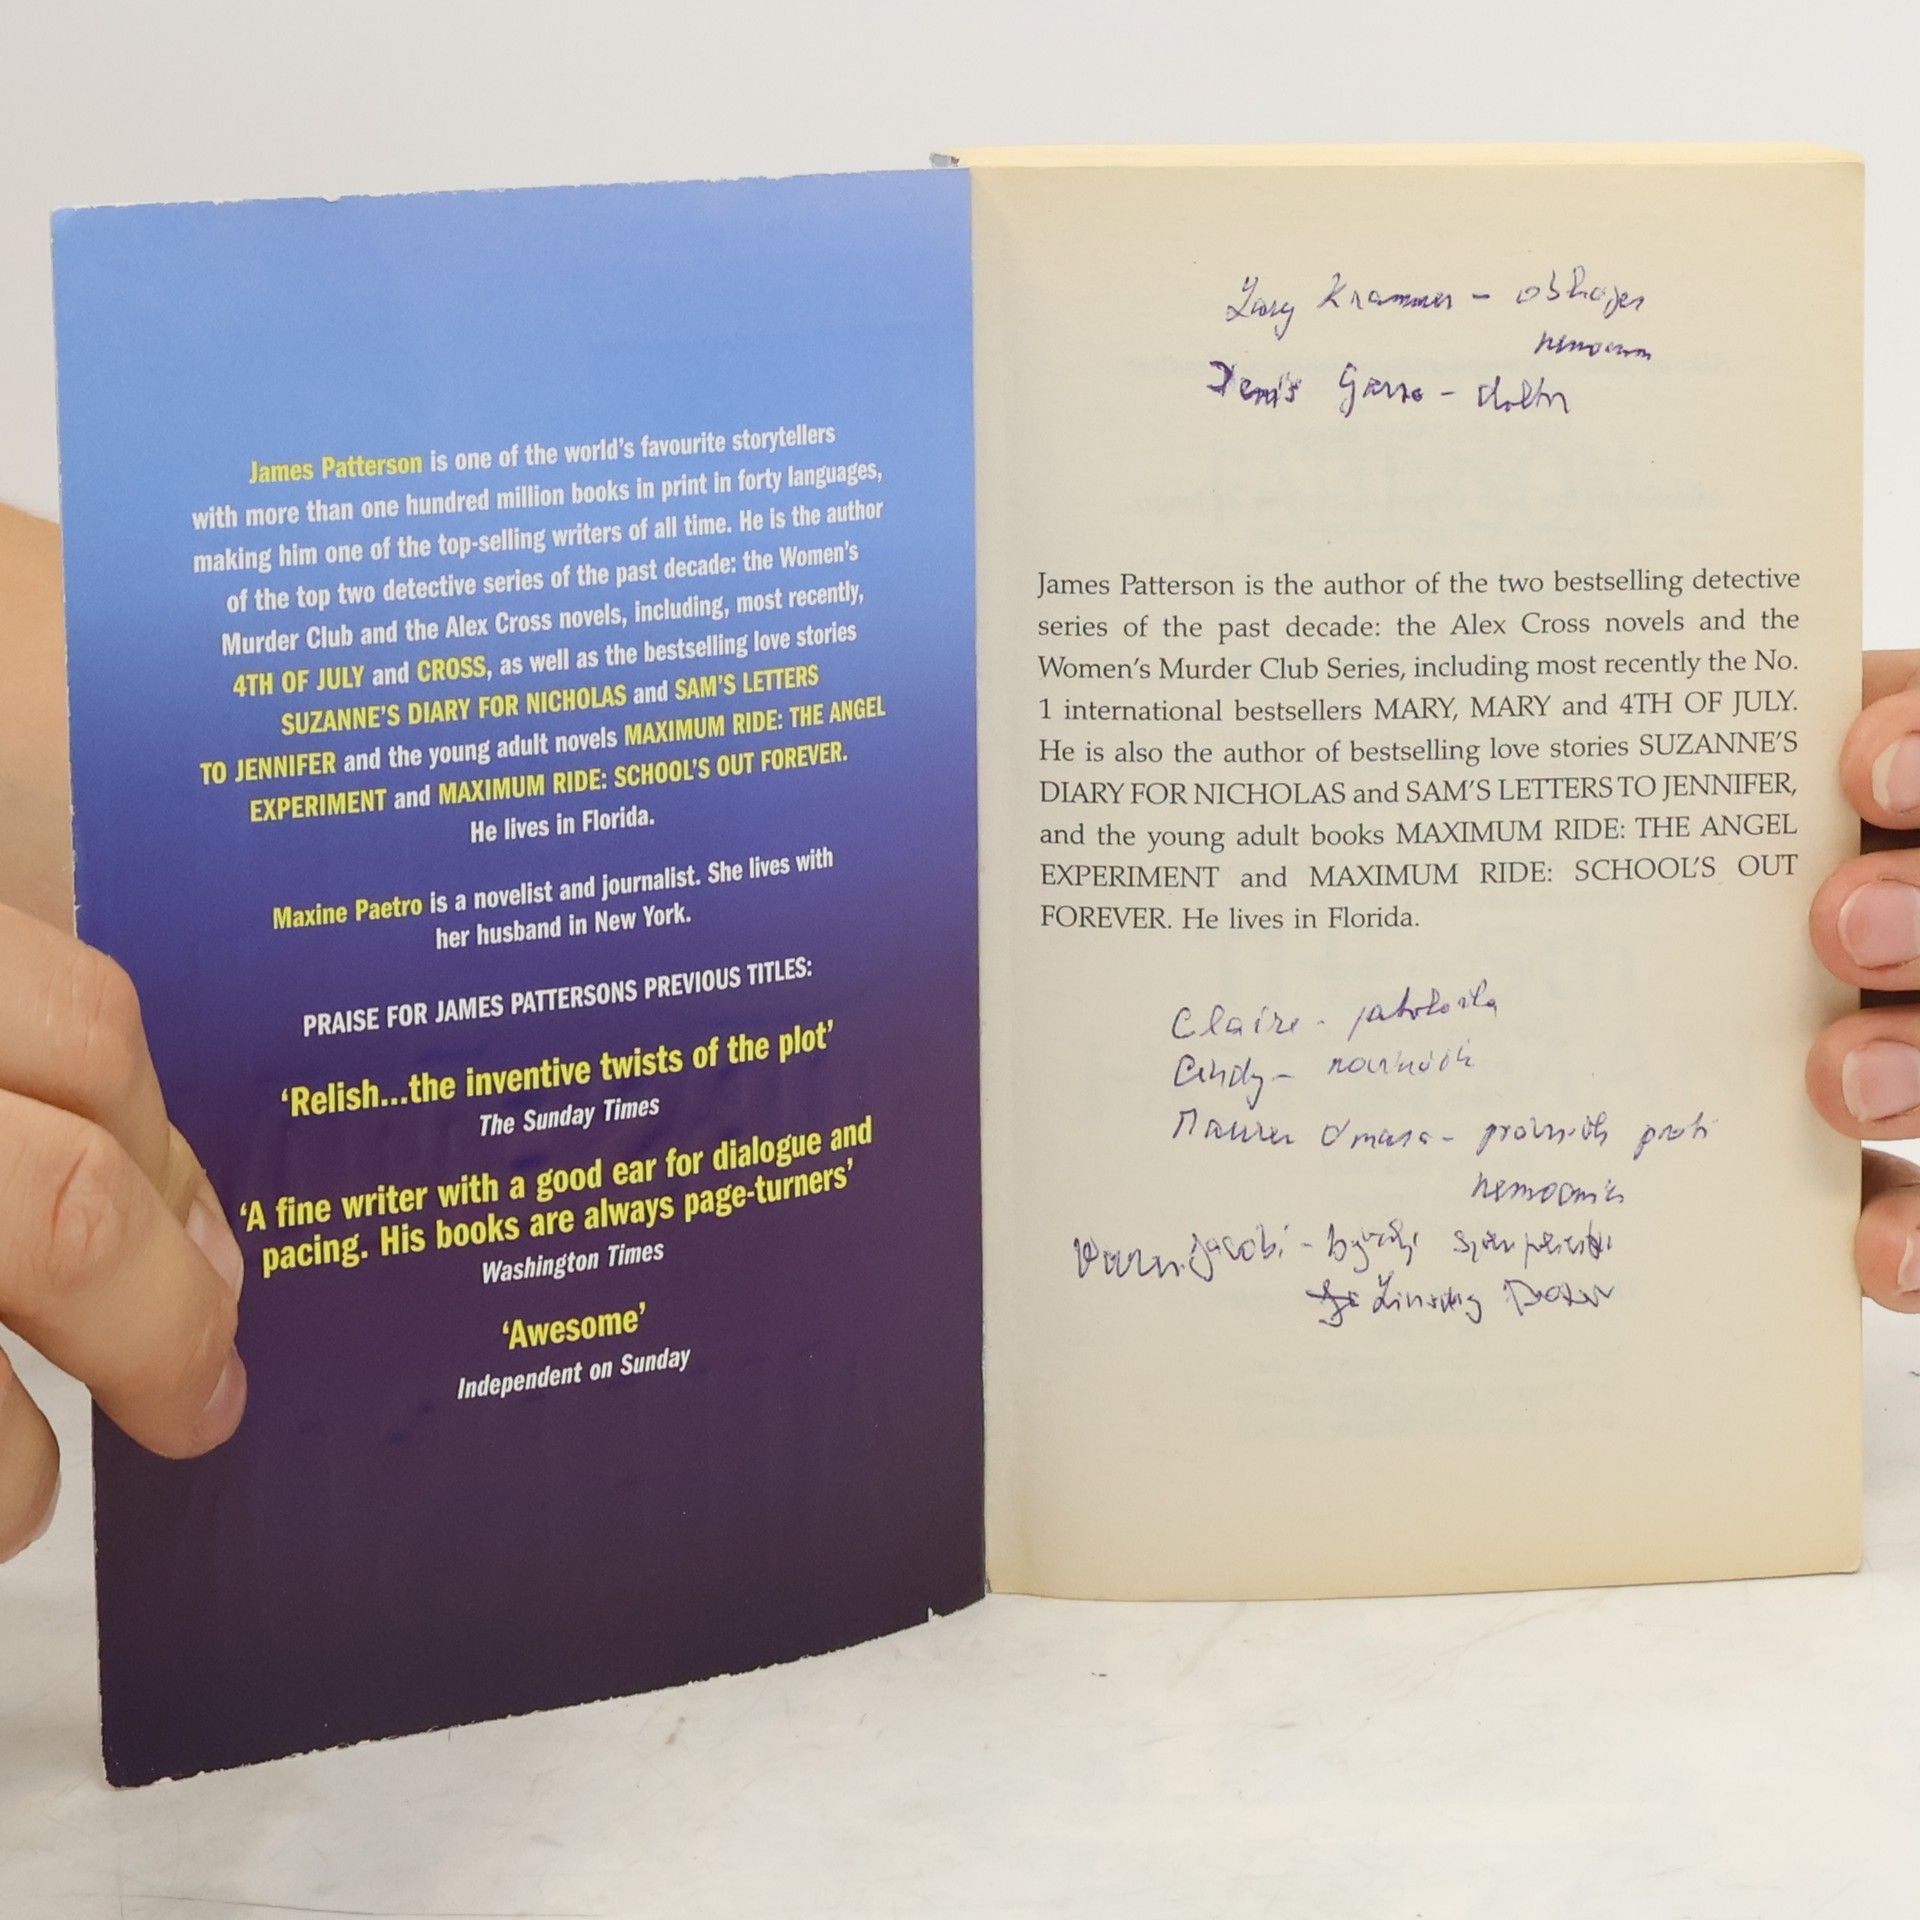 James Patterson is one of the world's favourite storytellers
with more than one hundred million books in print in forty languages,
making him one of the top-selling writers of all time. He is the author
of the top two detective series of the past decade: the Women's
Murder Club and the Alex Cross novels, including, most recently,
4TH OF JULY and CROSS, as well as the bestselling love stories
SUZANNE'S DIARY FOR NICHOLAS and SAM'S LETTERS
TO JENNIFER and the young adult novels MAXIMUM RIDE: THE ANGEL
EXPERIMENT and MAXIMUM RIDE: SCHOOL'S OUT FOREVER.
He lives in Florida.
Maxine Paetro is a novelist and journalist. She lives with
her husband in New York.
PRAISE FOR JAMES PATTERSONS PREVIOUS TITLES:
'Relish...the inventive twists of the plot'
The Sunday Times
'A fine writer with a good ear for dialogue and
pacing. His books are always page-turners'
Washington Times
'Awesome'
Independent on Sunday
Krammer -
Garza -
James Patterson is the author of the two bestselling detective
series of the past decade: the Alex Cross novels and the
Women's Murder Club Series, including most recently the No.
1 international bestsellers MARY, MARY and 4TH OF JULY.
He is also the author of bestselling love stories SUZANNE'S
DIARY FOR NICHOLAS and SAM'S LETTERS TO JENNIFER,
and the young adult books MAXIMUM RIDE: THE ANGEL
EXPERIMENT and MAXIMUM RIDE: SCHOOL'S OUT
FOREVER. He lives in Florida.
Claire -
Cindy -
Jacobi -